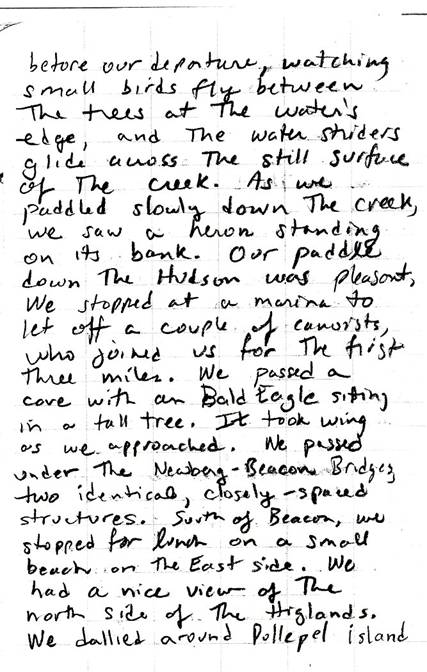 before our departure, watching
small birds fly between
The trees at The water's
edge, and The water striders
glide across The still surface
of The creek. As we
paddled slowly down The creek,
we saw a heron standing
on its bank. Our paddle
down The Hudson was pleasant,
We stopped at a marina to
let off a couple of canoists,
who joined us for The first
Three miles. We passed a
cove with an Bald Eagle sitting
in a tall tree. It took wing
as we approached. We passed
under The Newberg-Beacon Bridges,
two identical, closely-spaced
structures. South of Beacon, we
stopped for lunch on a small
beach on The East side. We
had a nice view of The
north side of The Higlands.
We dallied around Pollepel island